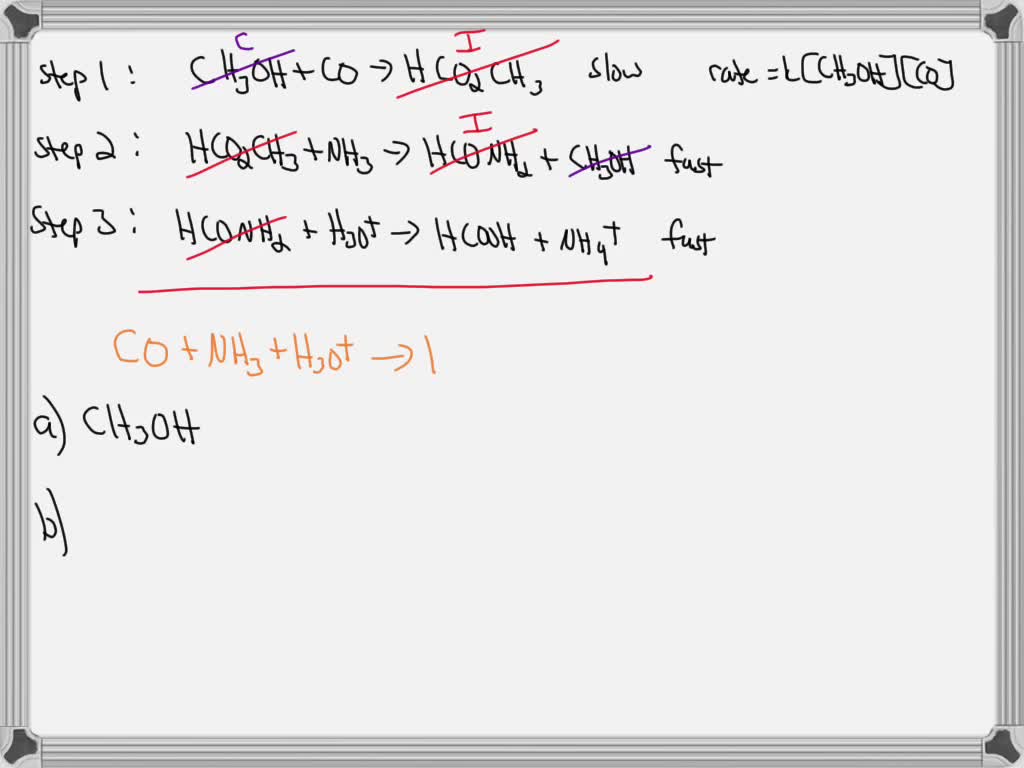 C I
Step 1 : CH₃OH + CO → HCO₂CH₃ slow rate = k[CH₃OH][CO]
I
Step 2 : HCO₂CH₃ + NH₃ → HCONH₂ + CH₃OH fast
Step 3 : HCONH₂ + H₃O⁺ → HCOOH + NH₄⁺ fast
CO + NH₃ + H₃O⁺ → l
a) CH₃OH
b)